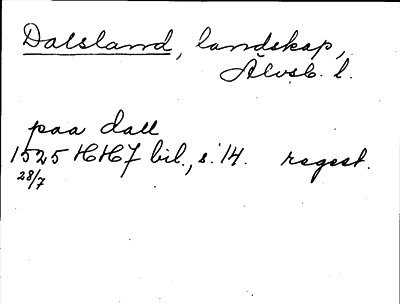 Dalsland, landskap,
Älvsb. l.
paa dall
1525 HH7 bil., s. 14. regest.
28/7